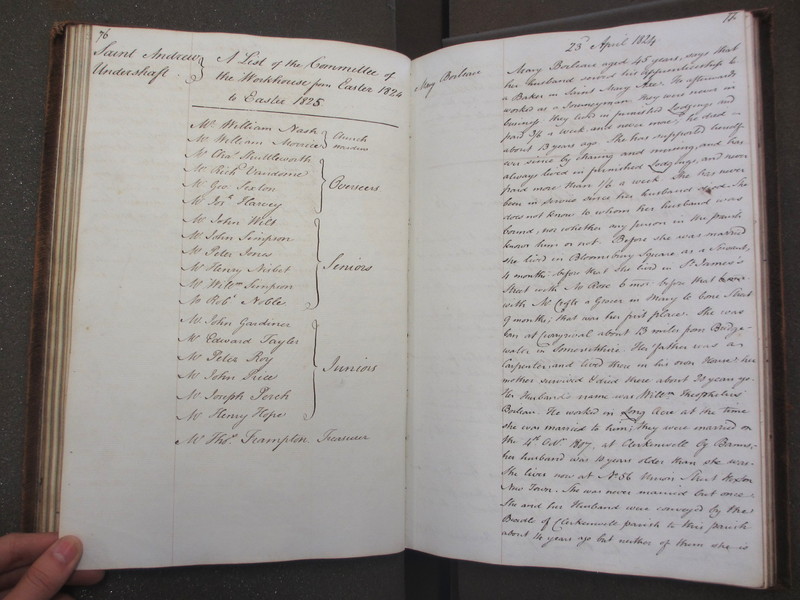 76
Saint Andrew
Undershaft
A List of the Committee of
the Workhouse from Easter 1824
to Easter 1825
Mr William Nash
Mr William
Church
wardens
Mr Chas. Shuttleworth
Mr Richd. Vandome
Mr Geo Sexton
Mr Jos. Harvey
Overseers
Mr John Wilt
Mr John Simpson
Mr Peter Jones
Mr Henry Nisbet
Mr Willm Simpson
Mr Robt. Noble
Seniors
Mr John Gardiner
Mr Edward Tayler
Mr Peter Roy
Mr John Price
Mr Joseph Perch
Mr Henry Hope
Juniors
Mr Thos. Frampton Treasurer
77
23d April 1824
Mary Borlease
Mary Borlease aged 45 years, says that
her husband served his apprenticeship to
a Baker in Saint Mary Axe. He afterwards
worked as a Journeyman they were never in
business they lived in furnished Lodgings and
paid 3/6 a week and never more; he died
about 13 years ago. She has supported herself
ever since by chairing and nursing, and has
always lived in furnished Lodgings, and never
paid more than 1/6 a week She has never
been in service since her husband died. She
does not know to whom her husband was
bound, nor whether any person in the parish
knows him or not. Before she was married
she lived in Bloomsbury Square as a Servant,
4 months: before that She lived in St James's
Street with Mr Rose 6 mos. before that
with Mr a Grocer in Mary le bone Street
9 months; that was her first place. She was
born at about 13 miles from Bridge-
water in Somersetshire. Her father was a
Carpenter, and lived there in his own House: her
mother survived & died there about 20 years ago.
Her Husband's name was Willm Theophelus
Borlease. He worked in Long Acre at the time
she was married to him; they were married on
the 4th Octr. 1807, at Clerkenwell by Banns,
her husband was 10 years older than she was.
She lives now at No. 56 Union Street Hoxton
New Town. She was never married but once.
She and her Husband were conveyed by the
Beadle of Clerkenwell parish to this parish
about 14 years ago but neither of them she is